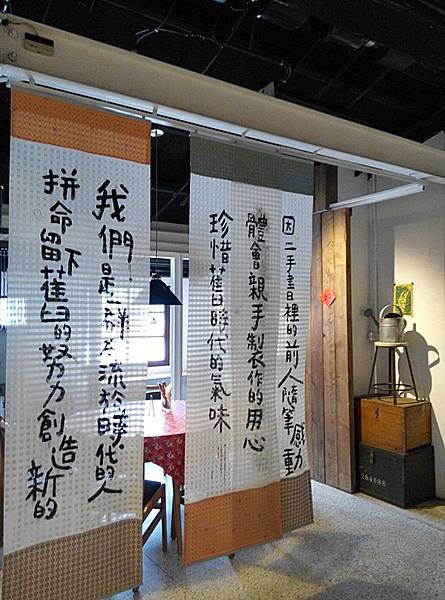 因二手書裡的前人隨筆感動
體會親手製作的用心
珍惜舊時代的氣味
我們是一群不流於時代的人
拼命留下舊的努力創造新的